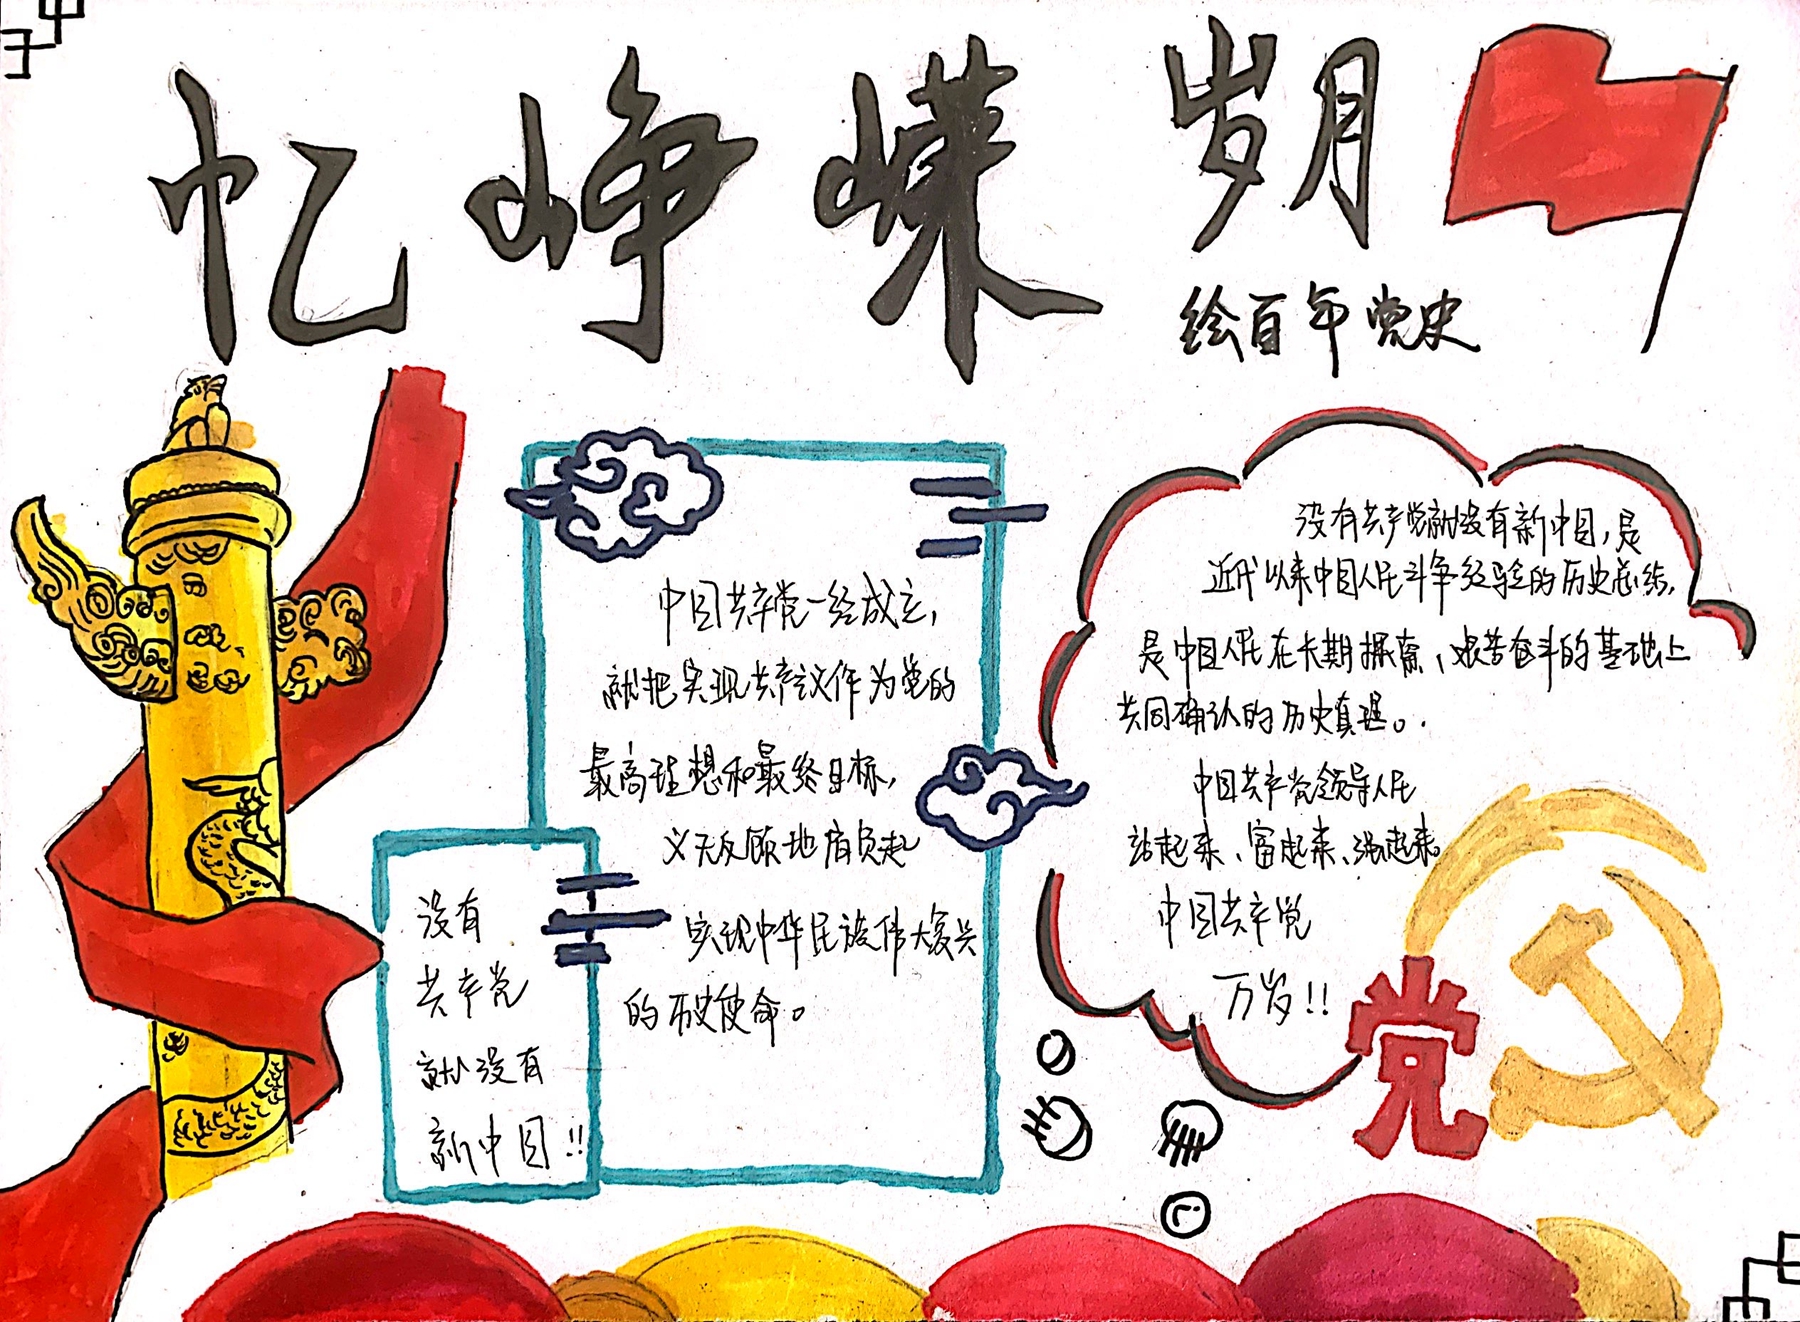 忆峥嵘岁月
绘百年党史
中国共产党一经成立,
就把实现共产主义作为党的
最高理想和最终目标,
义无反顾地肩负起
实现中华民族伟大复兴
的历史使命。
没有
共产党
就没有
新中国!!
没有共产党就没有新中国,是
近代以来中国人民斗争经验的历史总结,
是中国人民在长期探索、艰苦奋斗的基础上
共同确认的历史真理。
中国共产党领导人民
站起来、富起来、强起来。
中国共产党
万岁!!
党